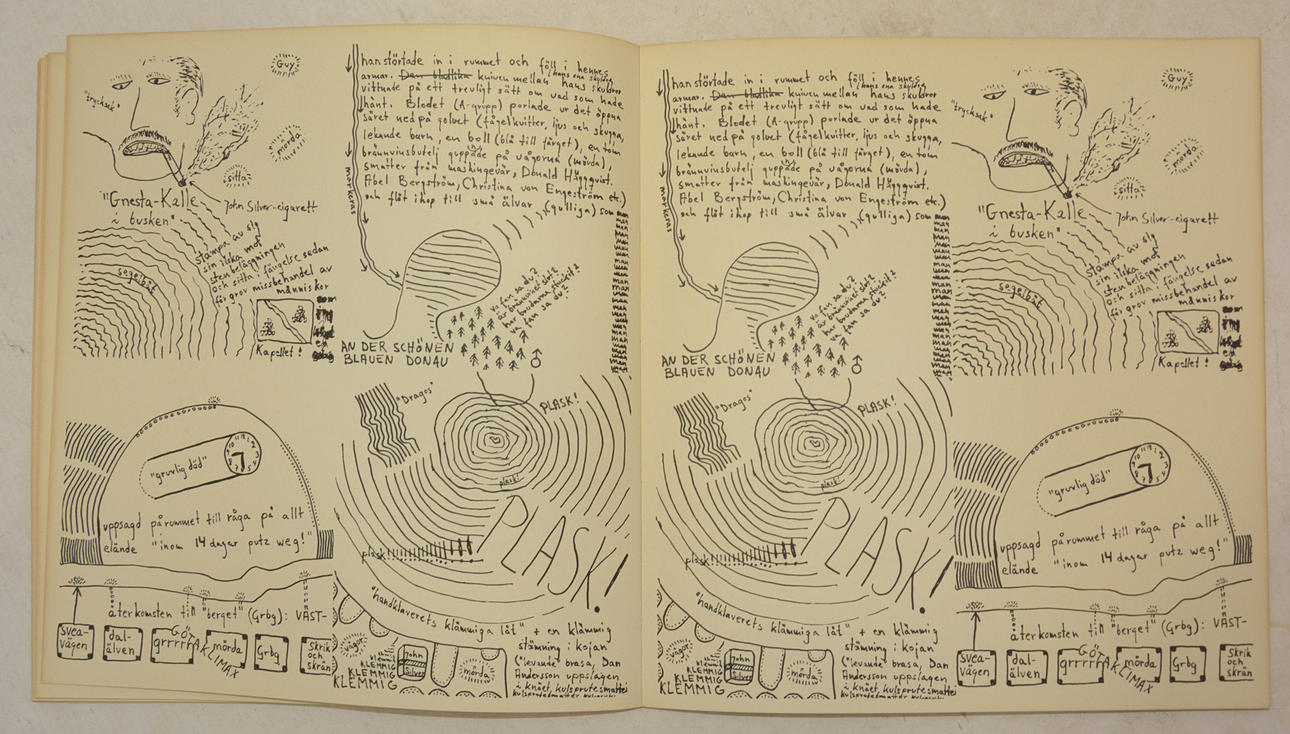 Guy
"trycksek"
mörda
sitta
"Gnesta-Kalle
i busken"
John Silver-cigarett
segelbåt
stampa av sig
sin ilska mot
stenbeläggningen
och sitta i fängelse sedan
för grov misshandel av
människor
som
en
Kapellet!
han störtade in i rummet och föll i hennes
armar. Den blodlika kniven mellan hans ena skuldra
hans skuldror
vittnade på ett trevligt sätt om vad som hade
hänt. Blodet (A-grupp) porlade ur det öppna
såret ned på golvet (fågelkvitter, ljus och skugga,
lekande barn, en boll (blå till färgen), en tom
brännvinsbutelj guppade på vågorna (mörda),
smatter från maskingevär, Donald Häggqvist.
Abel Bergström, Christina von Engeström etc.)
och flöt ihop till små älvar (gulliga) som
man
man
man
man
mörkeras
va fan sa du?
är brännvinet slut?
har brudarna stuckit?
fan sa du?
AN DER SCHÖNEN
BLAUEN DONAU
"Dragos"
PLASK!
plask!
PLASK!
plask!
"gruvlig dåd"
uppsagd på rummet till råga på allt
elände "inom 14 dagar putz weg!"
återkomsten till "berget" (Grbg): VÄST-
svea-
vägen
dal-
älven
GÖR
grrrrr
AKLIMAX
mörda
Grbg
Skrik
och
skrän
"handklaverets klämmiga låt" + en klämmig
stämning i kojan
("levande" brasa, Dan
Andersson uppslagen
i knäet, kulsprutesmatter
vågor
KLEMMIG
KLEMMIG
KLEMMIG
KLEMMIG
John
Silver
mörda
han störtade in i rummet och föll i hennes
armar. Den blodlika kniven mellan hans ena skuldra
hans skuldror
vittnade på ett trevligt sätt om vad som hade
hänt. Blodet (A-grupp) porlade ur det öppna
såret ned på golvet (fågelkvitter, ljus och skugga,
lekande barn, en boll (blå till färgen), en tom
brännvinsbutelj guppade på vågorna (mörda),
smatter från maskingevär, Donald Häggqvist.
Abel Bergström, Christina von Engeström etc.)
och flöt ihop till små älvar (gulliga) som
man
man
man
man
mörkeras
va fan sa du?
är brännvinet slut?
har brudarna stuckit?
fan sa du?
AN DER SCHÖNEN
BLAUEN DONAU
"Dragos"
PLASK!
plask!
PLASK!
plask!
"handklaverets klämmiga låt" + en klämmig
stämning i kojan
("levande" brasa, Dan
Andersson uppslagen
i knäet, kulsprutesmatter
vågor
KLEMMIG
KLEMMIG
KLEMMIG
KLEMMIG
John
Silver
mörda
Guy
"trycksek"
mörda
sitta
"Gnesta-Kalle
i busken"
John Silver-cigarett
segelbåt
stampa av sig
sin ilska mot
stenbeläggningen
och sitta i fängelse sedan
för grov misshandel av
människor
som
en
Kapellet!
"gruvlig dåd"
uppsagd på rummet till råga på allt
elände "inom 14 dagar putz weg!"
återkomsten till "berget" (Grbg): VÄST-
svea-
vägen
dal-
älven
GÖR
grrrrr
AKLIMAX
mörda
Grbg
Skrik
och
skrän